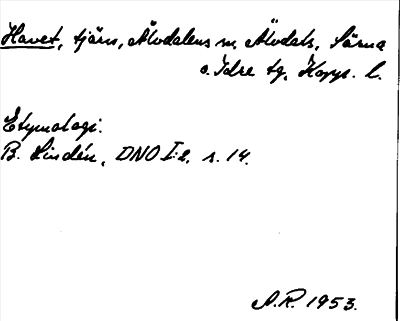 Havet, tjärn, Älvdalens sn, Älvdals, Särna
o. Idre tg, Kopp. l.
Etymologi.
B. Lindén, DNO I:2, s. 14.
A.R. 1953.